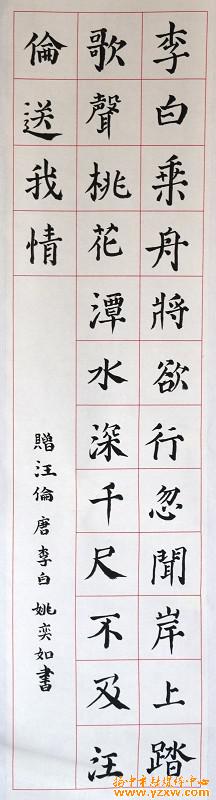 李白乘舟將欲行忽聞岸上踏
歌聲桃花潭水深千尺不及汪
倫送我情
贈汪倫 唐 李白 姚奕如書
扬中市融媒体中心
www.yzxw.com